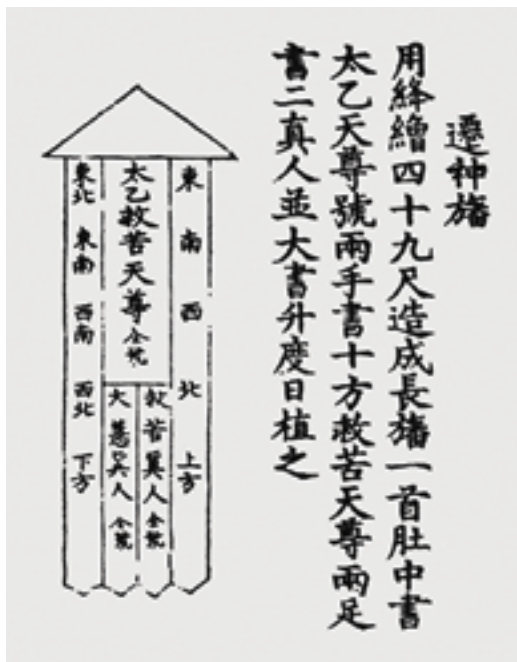 遷神旛
用絳繒四十九尺造成長旛一首肚中書
太乙天尊號兩手書十方救苦天尊兩足
書二真人並大書升度日植之
東 南 西 北 上方
太乙救苦天尊仝號
救苦真人仝號
大慧真人仝號
東北 東南 西南 西北 下方